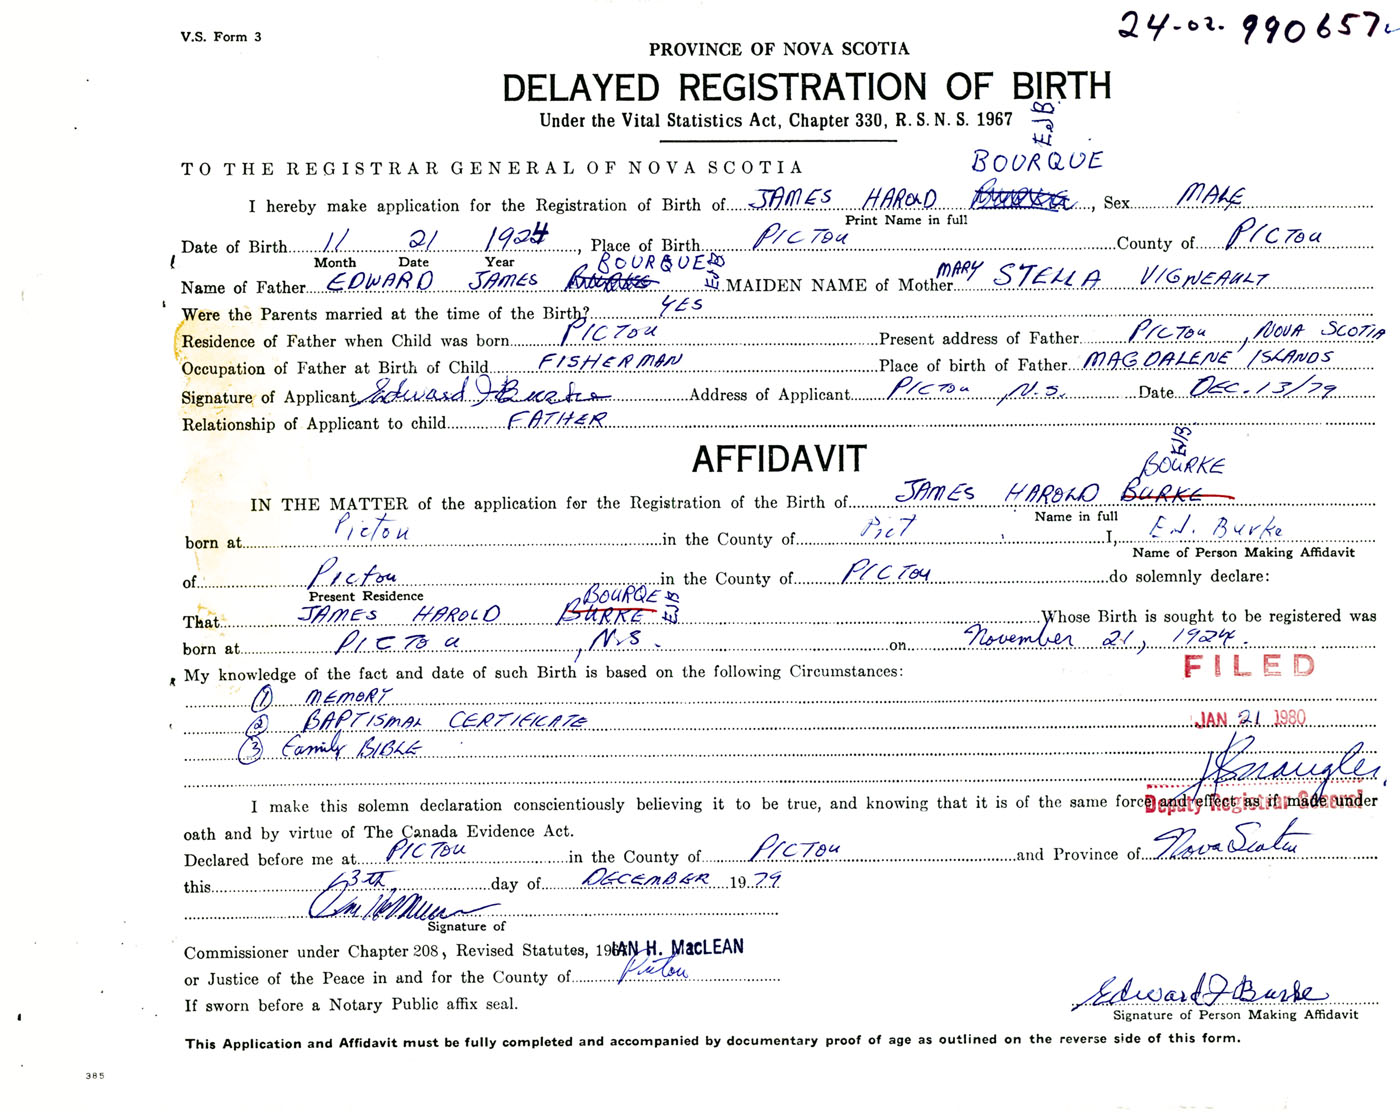 V.S. Form 3
24-02. 990657
PROVINCE OF NOVA SCOTIA
DELAYED REGISTRATION OF BIRTH
Under the Vital Statistics Act, Chapter 330, R.S.N.S. 1967
EJB
TO THE REGISTRAR GENERAL OF NOVA SCOTIA
BOURQUE
I hereby make application for the Registration of Birth of JAMES HAROLD BURKE, Sex MALE
Print Name in full
Date of Birth 11 21 1924, Place of Birth PICTOU County of PICTOU
Month Date Year
BOURQUE EJB
Name of Father EDWARD JAMES BURKE MAIDEN NAME of Mother MARY STELLA VIGNEAULT
Were the Parents married at the time of the Birth? YES
Residence of Father when Child was born PICTOU Present address of Father PICTOU, NOVA SCOTIA
Occupation of Father at Birth of Child FISHERMAN Place of birth of Father MAGDALENE ISLANDS
Signature of Applicant Edward J Burke Address of Applicant PICTOU, N.S. Date DEC. 13/79
Relationship of Applicant to child FATHER
AFFIDAVIT
EJB
BOURKE
IN THE MATTER of the application for the Registration of the Birth of JAMES HAROLD BURKE
Name in full
born at Pictou in the County of Pict I, E.J. Burke
Name of Person Making Affidavit
of Pictou in the County of PICTOU do solemnly declare:
Present Residence
BOURQE EJB
That JAMES HAROLD BURKE Whose Birth is sought to be registered was
born at PICTOU, N.S. on November 21, 1924.
My knowledge of the fact and date of such Birth is based on the following Circumstances:
FILED
① MEMORY
② BAPTISMAL CERTIFICATE
JAN 21 1980
③ Family BIBLE
I make this solemn declaration conscientiously believing it to be true, and knowing that it is of the same force and effect as if made under
Deputy Registrar General
oath and by virtue of The Canada Evidence Act.
Declared before me at PICTOU in the County of PICTOU and Province of Nova Scotia
this 13th day of DECEMBER 1979
Signature of
Commissioner under Chapter 208, Revised Statutes, 196 IAN H. MacLEAN
or Justice of the Peace in and for the County of Pictou
If sworn before a Notary Public affix seal.
Edward J Burke
Signature of Person Making Affidavit
This Application and Affidavit must be fully completed and accompanied by documentary proof of age as outlined on the reverse side of this form.
385